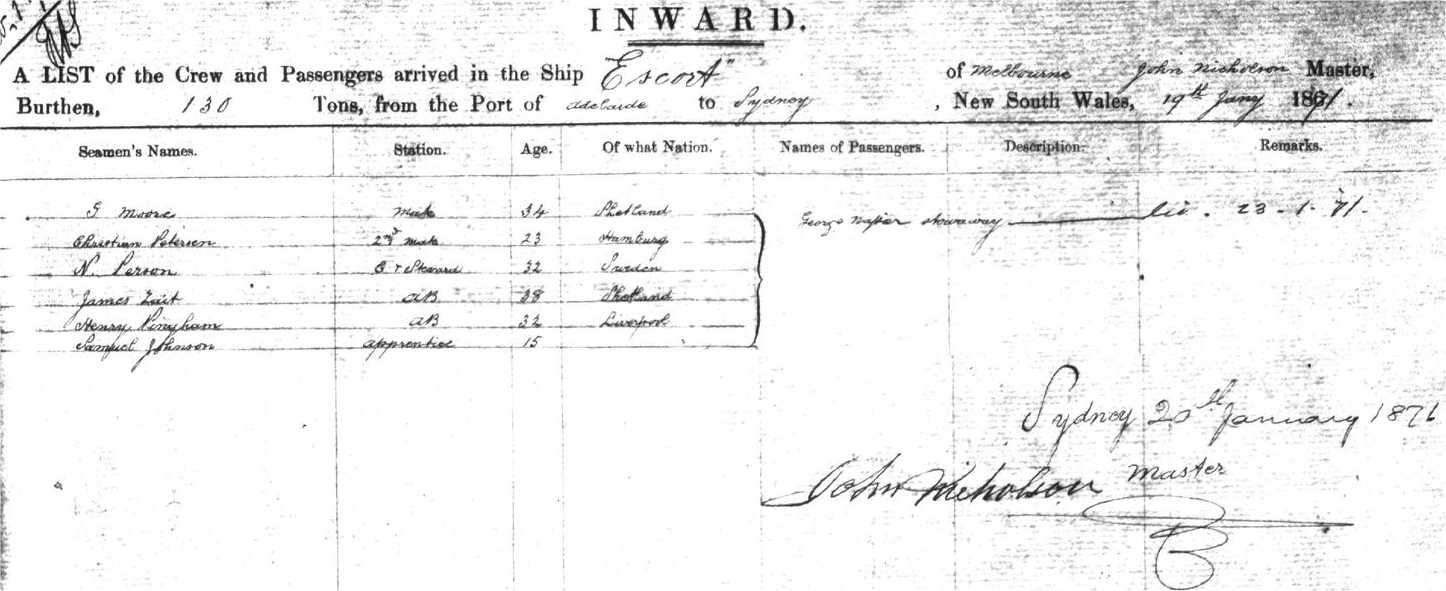 INWARD.
A LIST of the Crew and Passengers arrived in the Ship "Escort" of Melbourne John Nicholson Master,
Burthen, 130 Tons, from the Port of Adelaide to Sydney, New South Wales, 19th Jany 1871.
Seamen's Names. Station. Age. Of what Nation. Names of Passengers. Description. Remarks.
Moore Mate 34 Shetland George Napier stowaway 23.1.71.
Christian Petersen 2nd mate 23 Hamburg
N. Person C & Steward 32 Sweden
James AB 38 Shetland
Henry AB 32 Liverpool
Samuel Johnson apprentice 15
Sydney 20th January 1871
John Nicholson Master